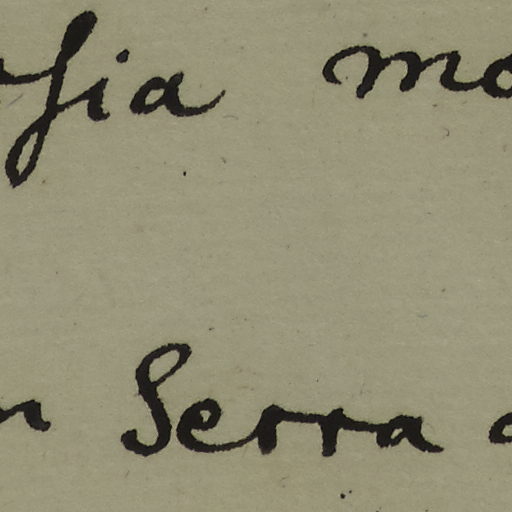 ſia mo
n Serra